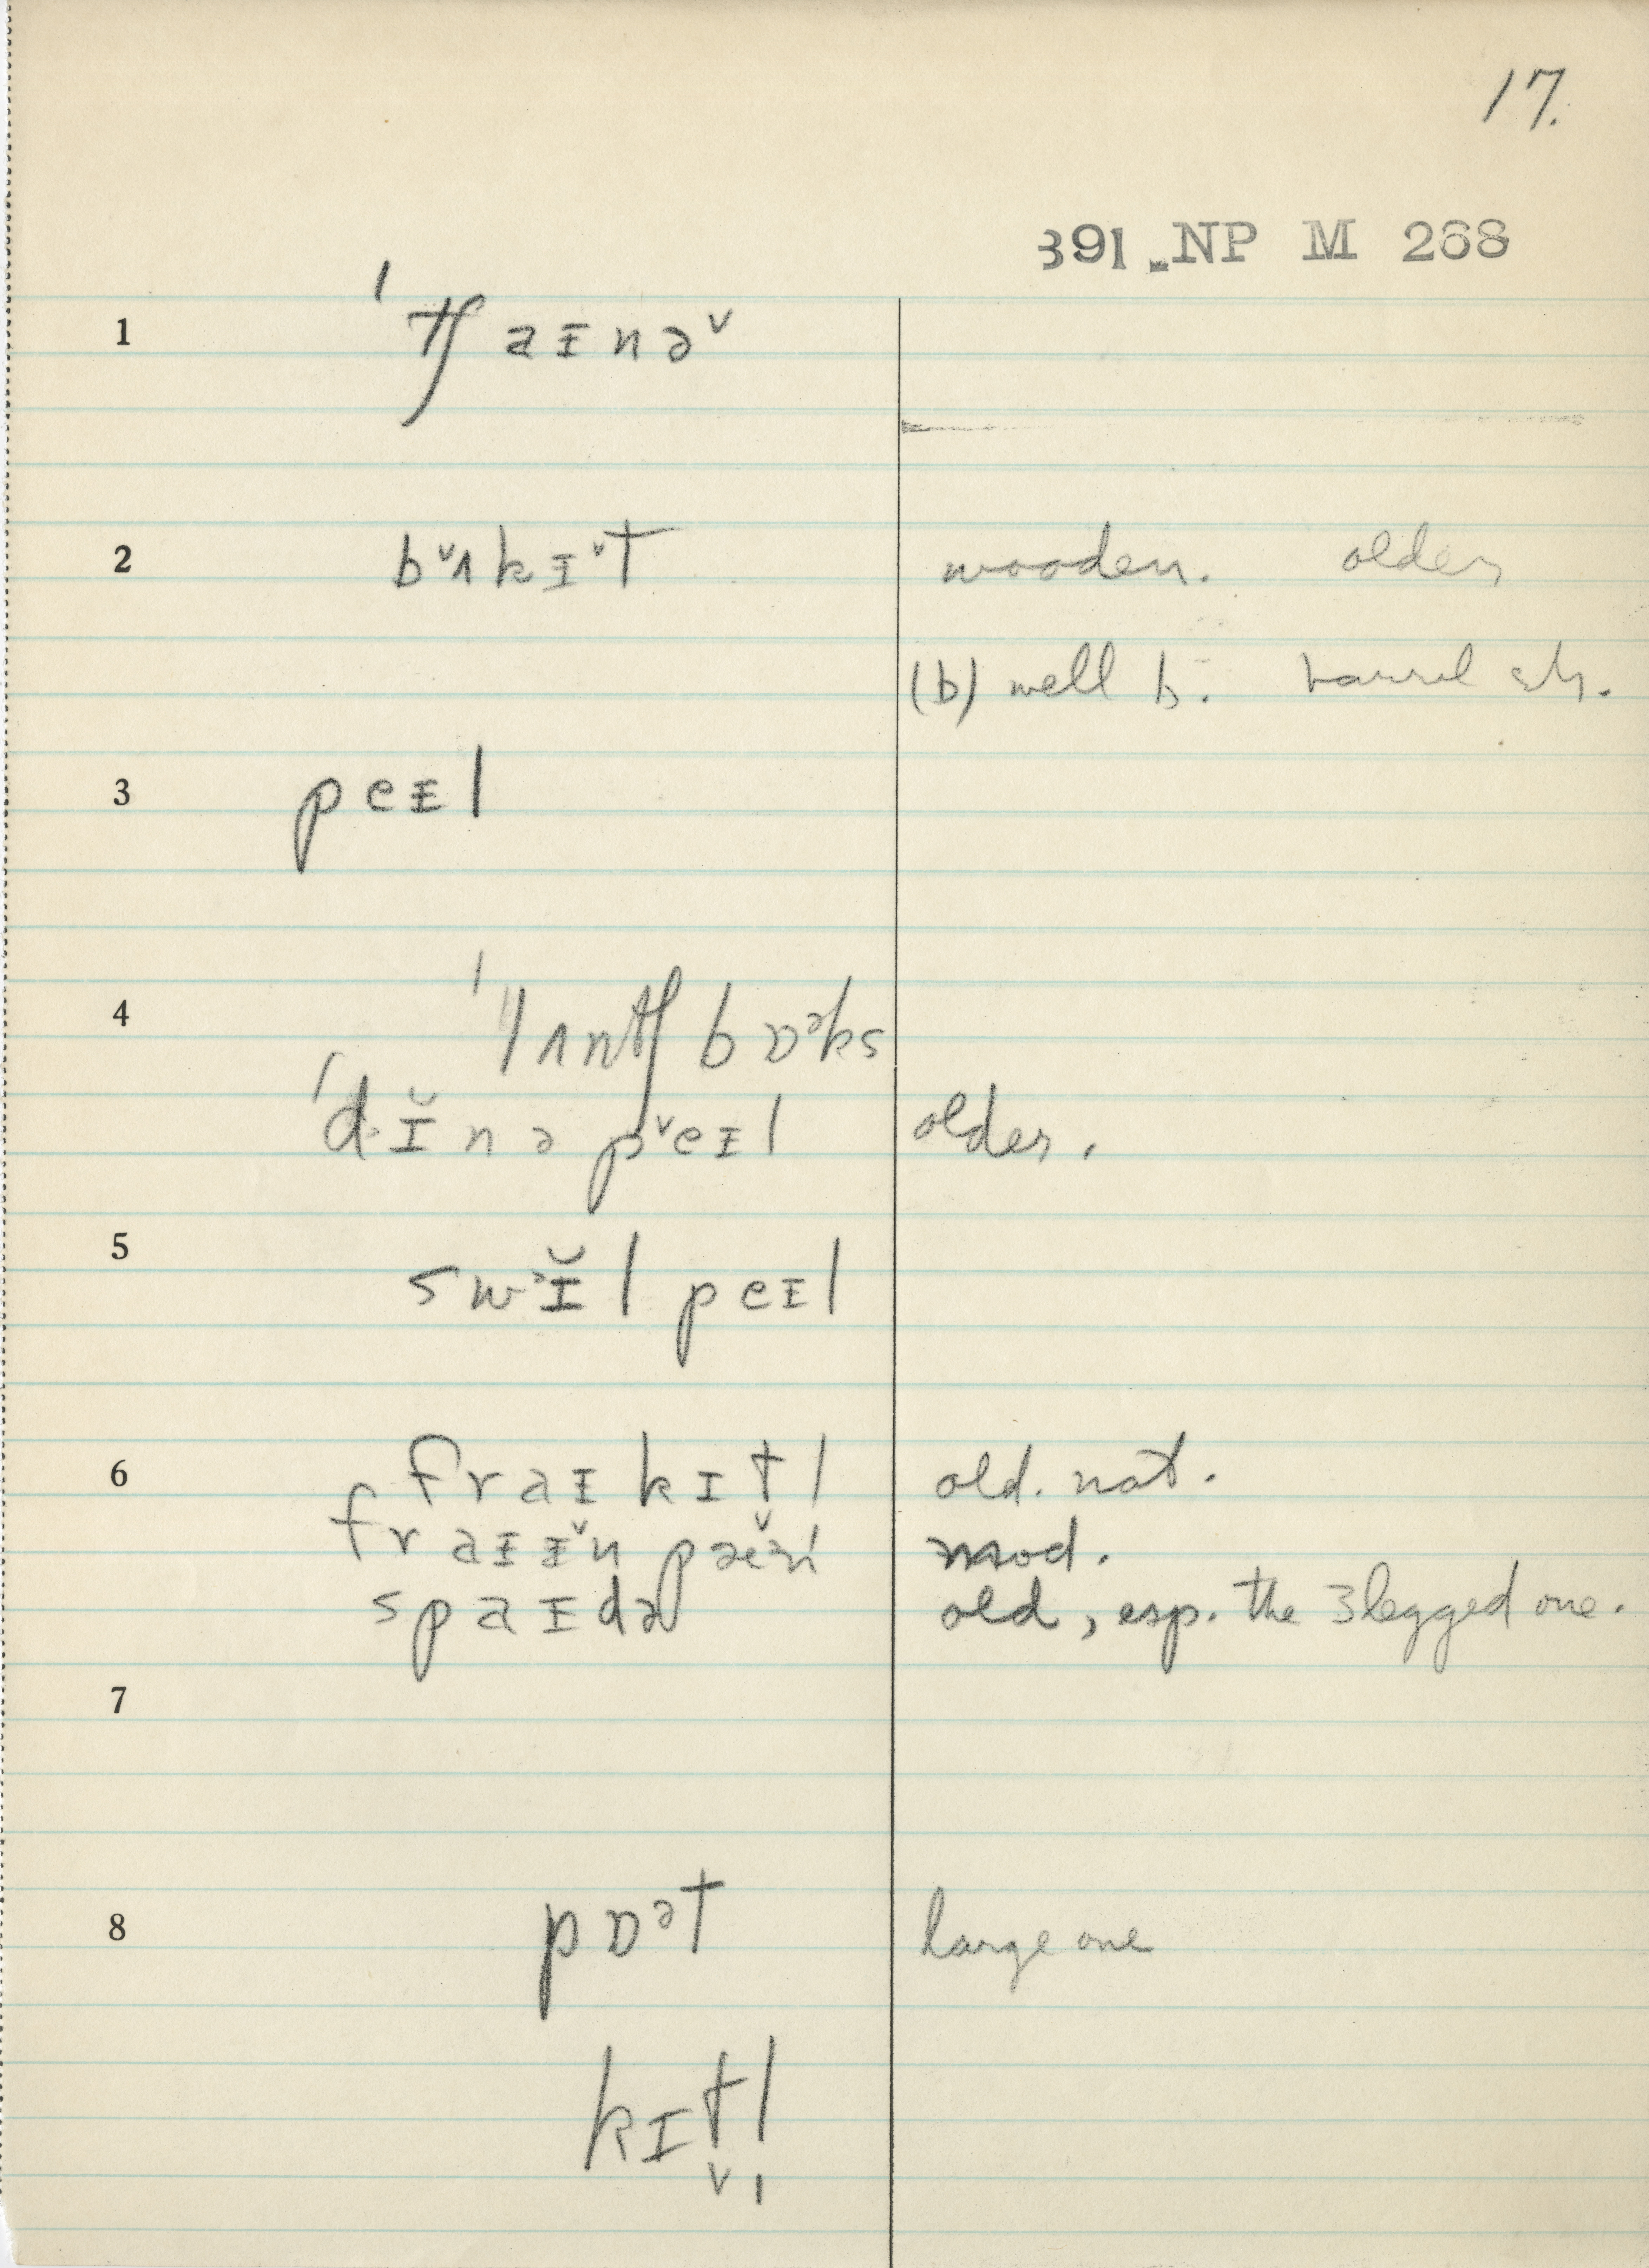 17.
391 NP M 268
1 ˈtʃaɪnə˅
2 b˅ʌkɪ˅t wooden. older
(b) well b. barrel etc.
3 peɪl
4 ˈlʌntʃ bɒᵊks
ˈdɪ̆nə p˅eɪl older.
5 swᵊɪ̆l peɪl
6 fraɪ kɪtl old. nat.
fraɪɪ˅n pæᵊn mod.
spaɪdə old, esp. the 3 legged one.
7
8 pɒᵊt large one
kɪt̬l̩